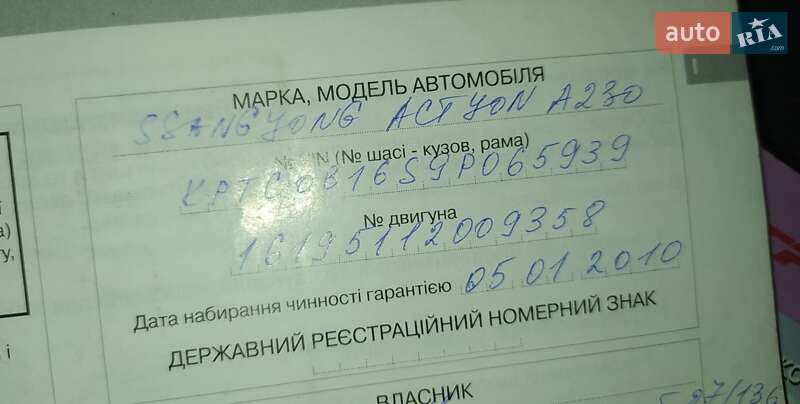 auto RIA.com
МАРКА, МОДЕЛЬ АВТОМОБІЛЯ
SSANGYONG ACTYON A230
№ VIN (№ шасі - кузов, рама)
KPTC0B16S9P065939
№ двигуна
16195112009358
Дата набирання чинності гарантією 05 01 2010
ДЕРЖАВНИЙ РЕЄСТРАЦІЙНИЙ НОМЕРНИЙ ЗНАК
ВЛАСНИК